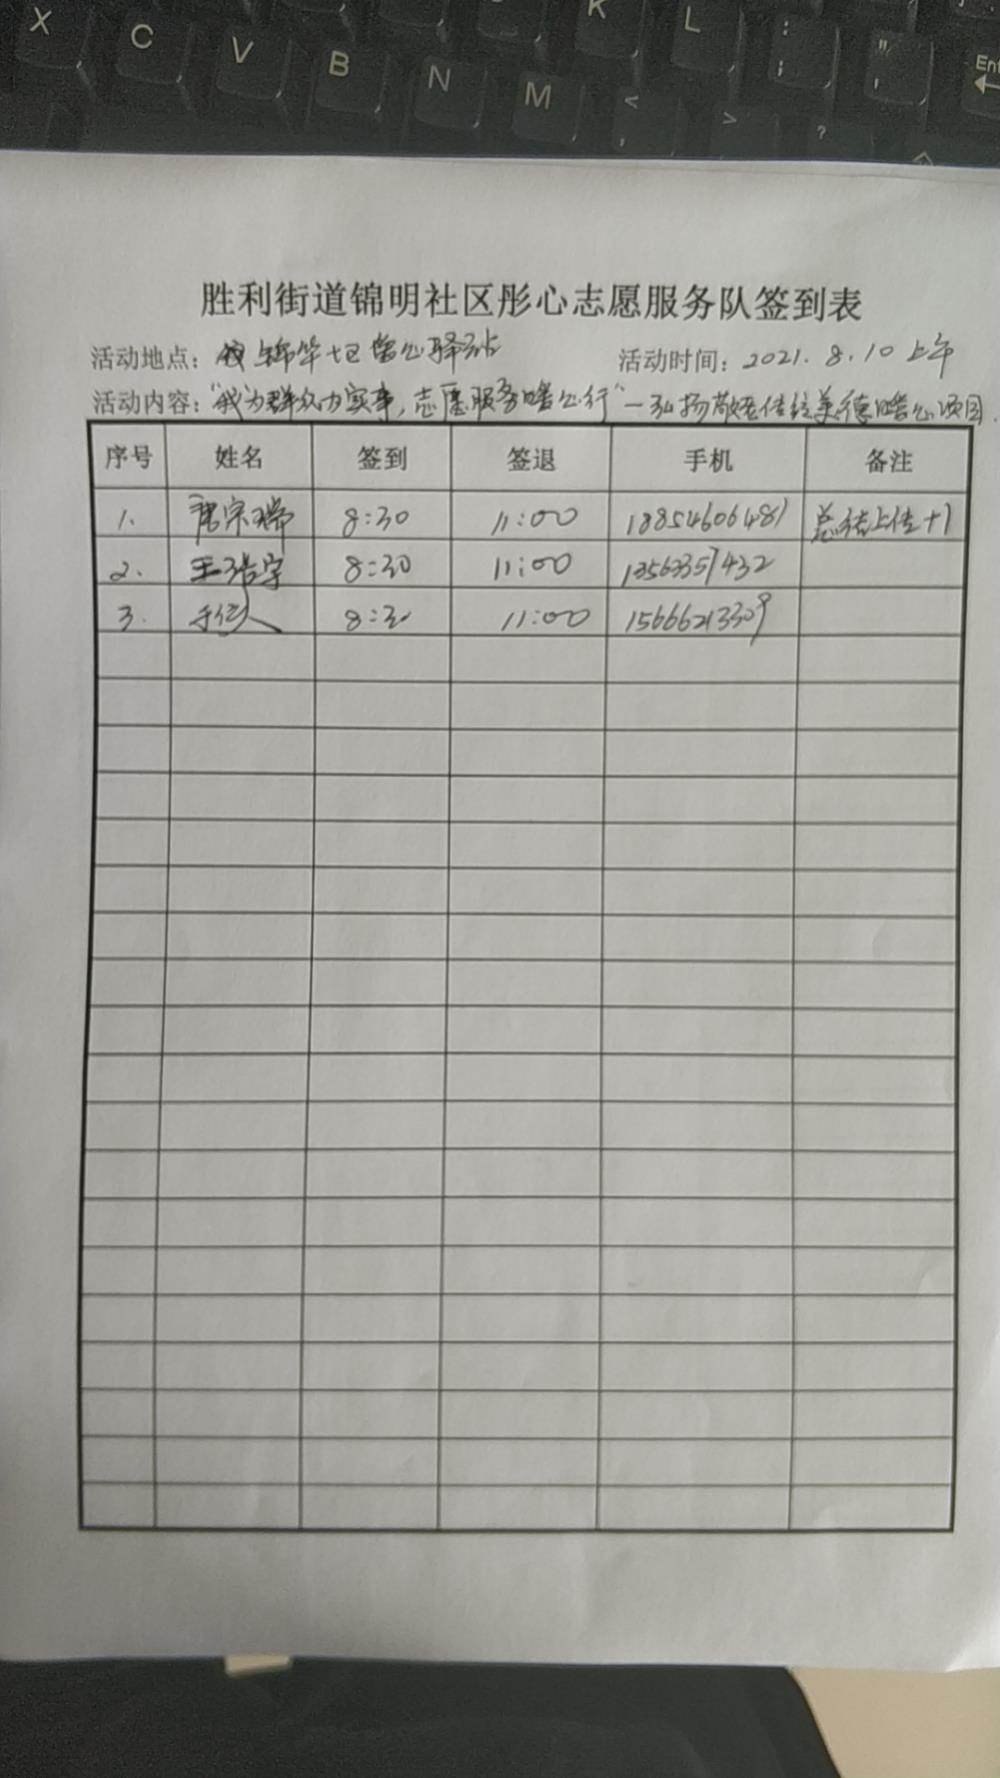 X C V B N M K L : ; " ' Ent
< , > ?
胜利街道锦明社区彤心志愿服务队签到表
活动地点：锦华七区暖心驿站 活动时间：2021.8.10 上午
活动内容："我为群众办实事,志愿服务暖心行"—弘扬敬老传统美德暖心项目.
序号 姓名 签到 签退 手机 备注
1. 唐宗瑞 8:30 11:00 18854606481 总结上传+1
2. 王浩宇 8:30 11:00 13563357432
3. 8:30 11:00 15666213309